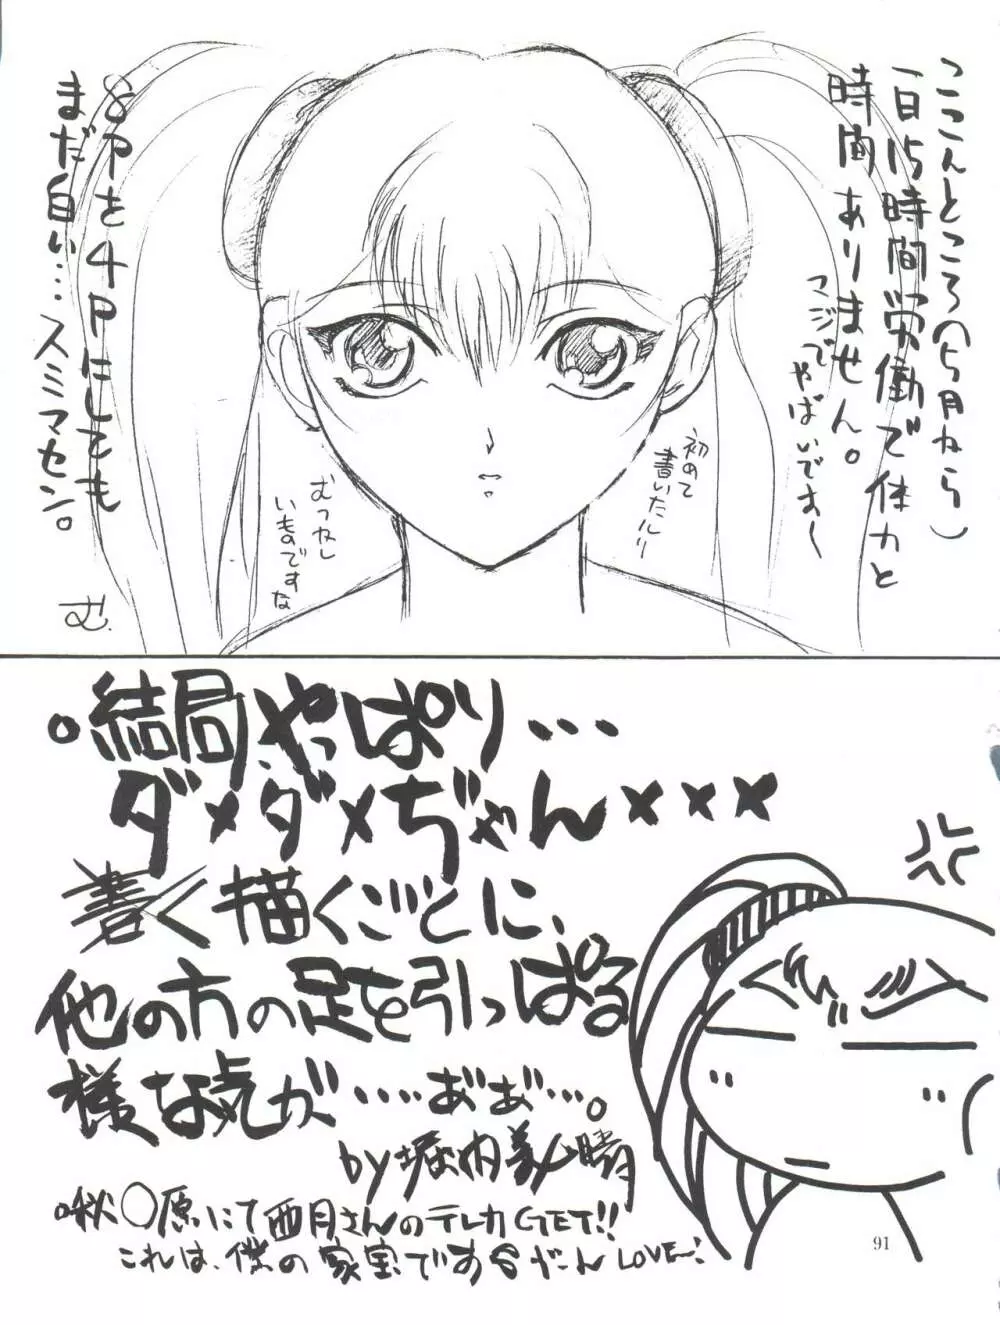 ここんところ(5月ねら)
一日15時間労働で体力と
時間ありません。
マジで
やばいでーす
初めて
書いたルリ
むつかし
いものですな
8Pを4Pにしても
まだ白い…スミマセン。
む.
。結局、やっぱり…
ダメダメぢゃん×××
書く描くごとに、
他の方の足を引っぱる
様な気が……あ゛あ゛…。
by堀内美晴
秋〇原にて西月さんのテレカGET!!
これは、僕の家宝であるがーんLOVE〜!
91